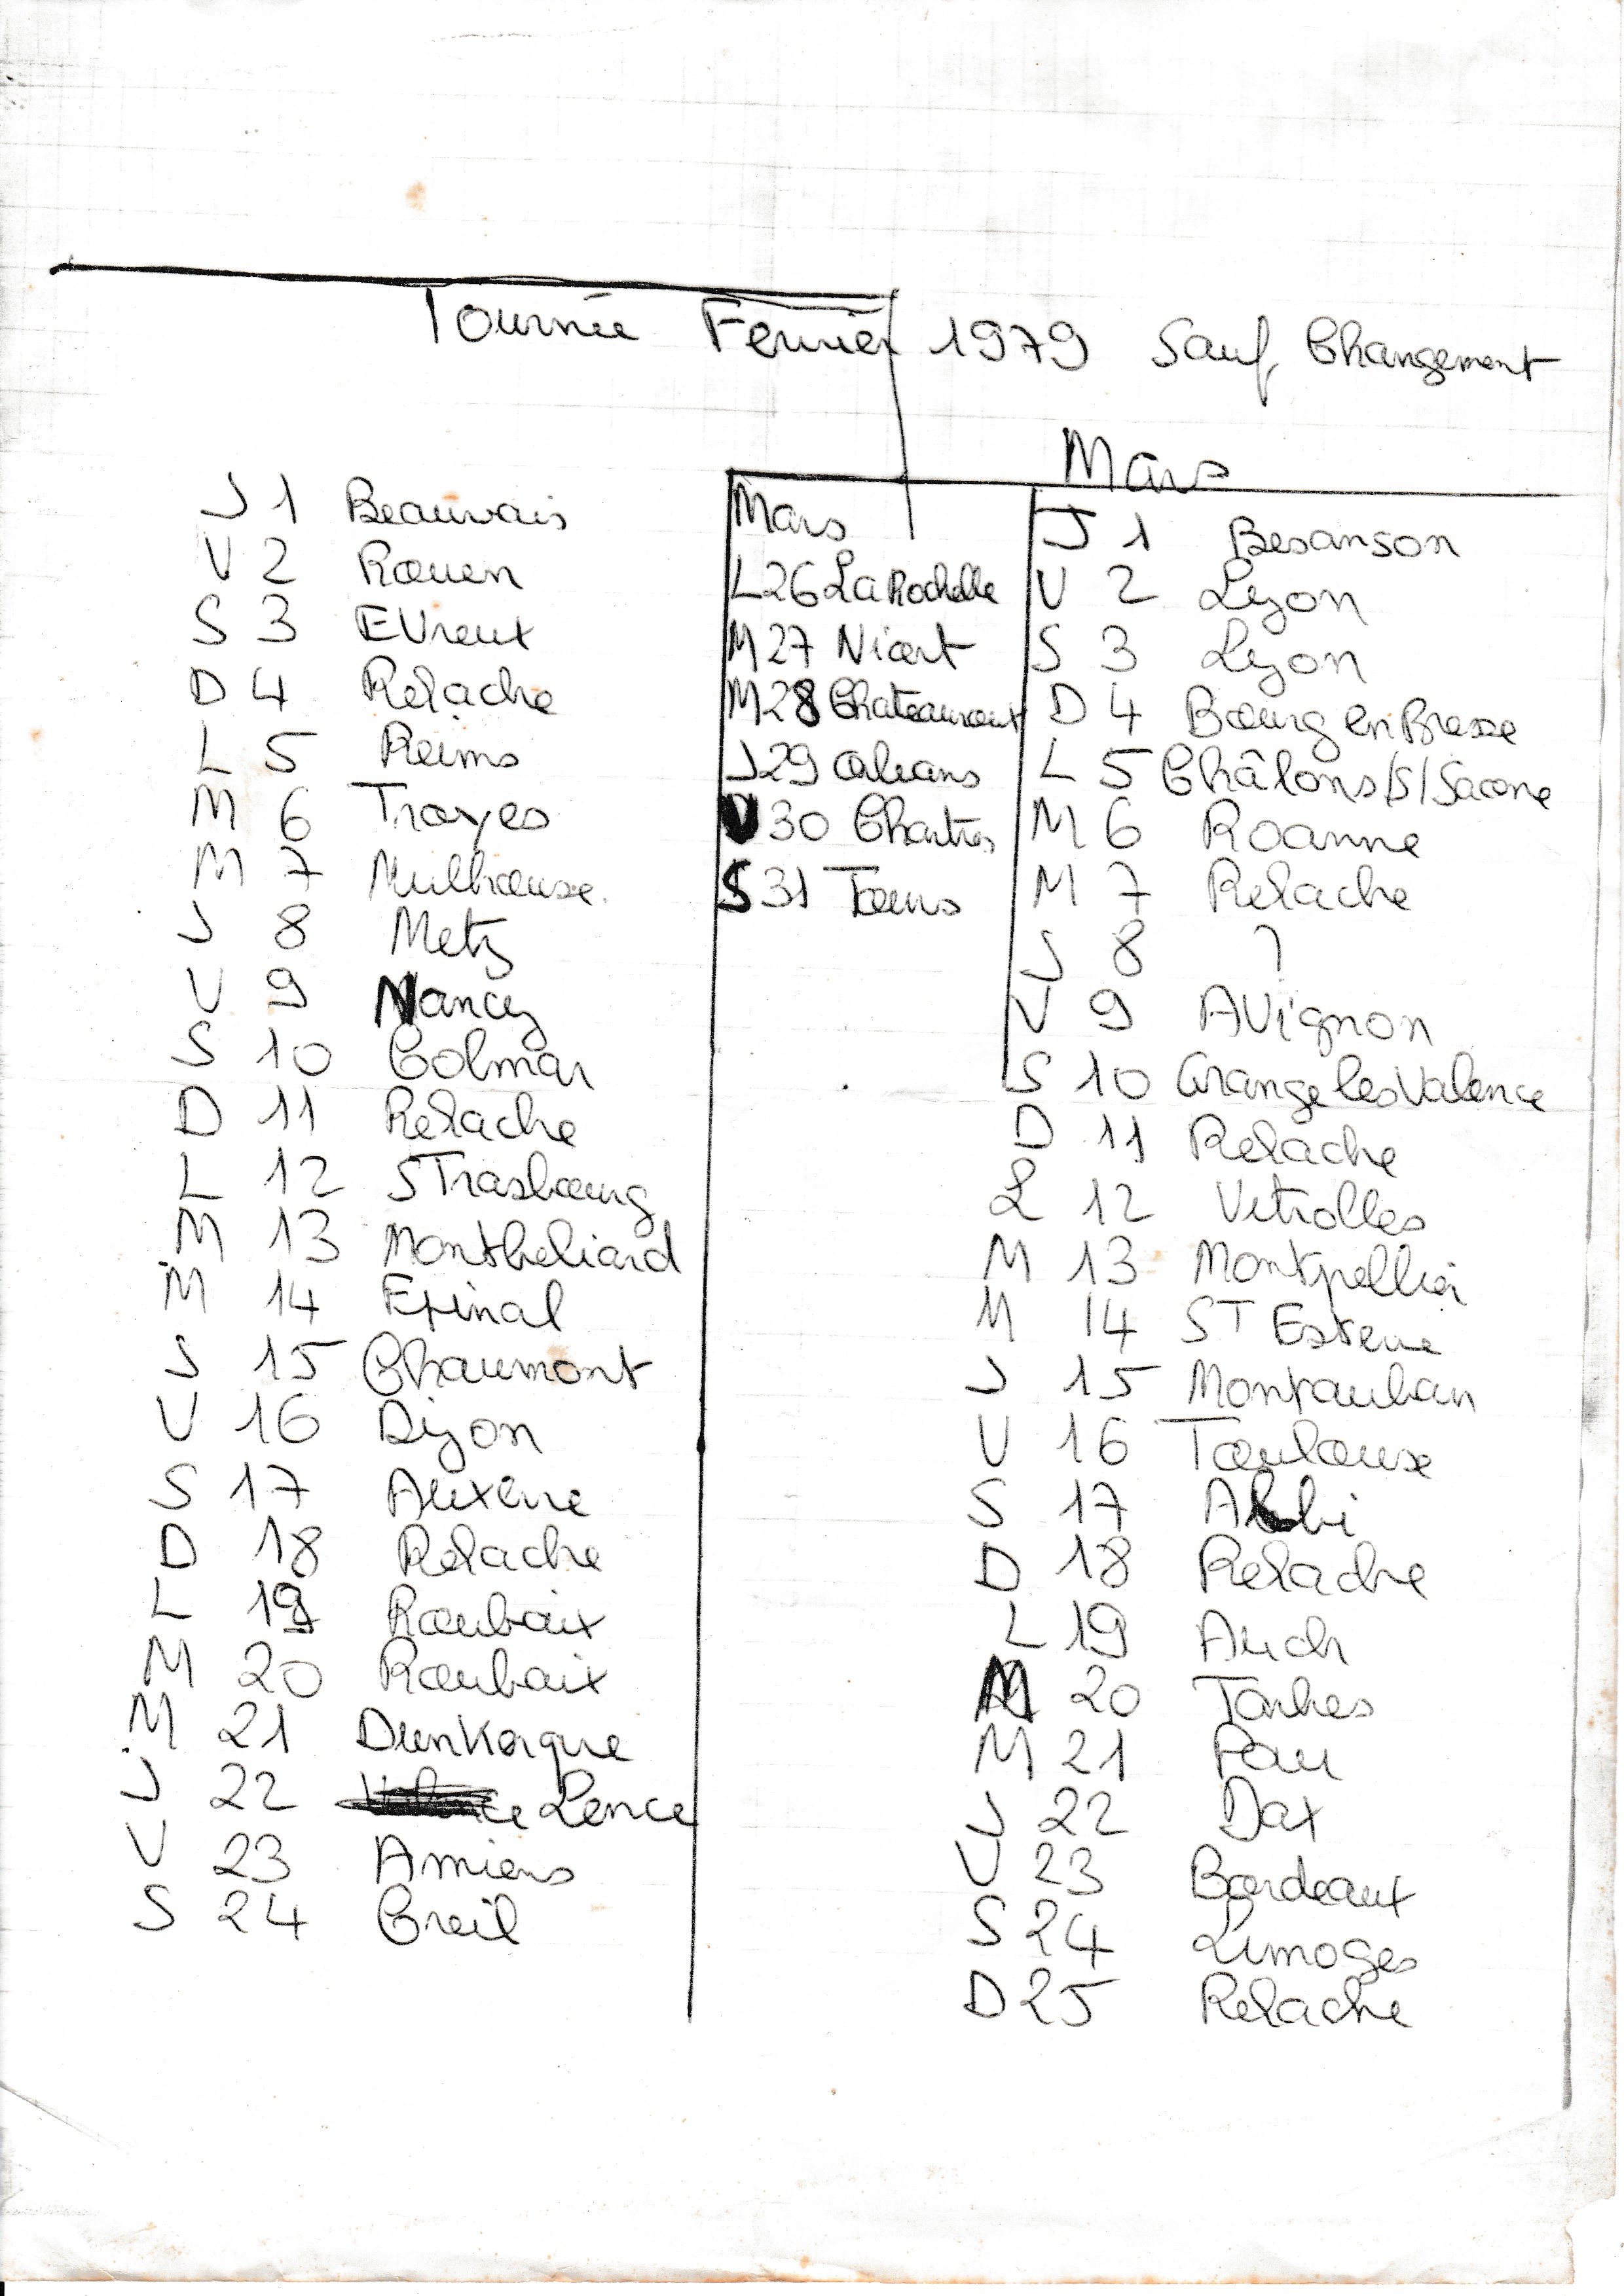 Tournée Fevrier 1979 Sauf Changement
J 1 Beauvais
V 2 Rouen
S 3 EVreux
D 4 Relache
L 5 Reims
M 6 Troyes
M 7 Mulhouse.
J 8 Metz
V 9 Nancy
S 10 Colmar
D 11 Relache
L 12 STrasbourg
M 13 Montbeliard
M 14 Epinal
J 15 Chaumont
V 16 Dijon
S 17 Auxerre
D 18 Relache
L 19 Roubaix
M 20 Roubaix
M 21 Dunkerque
J 22 Lence
V 23 Amiens
S 24 Creil
Mars
L 26 La Rochelle
M 27 Niort
M 28 Chateauroux
J 29 Orleans
V 30 Chartres
S 31 Tours
Mars
J 1 Besanson
V 2 Lyon
S 3 Lyon
D 4 Bourg en Bresse
L 5 Châlons/S/Saone
M 6 Roanne
M 7 Relache
J 8 ?
V 9 AVignon
S 10 Grange les Valence
D 11 Relache
L 12 Vitrolles
M 13 Montpellier
M 14 ST Esteve
J 15 Montauban
V 16 Toulouse
S 17 Albi
D 18 Relache
L 19 Auch
M 20 Tarbes
M 21 Pau
J 22 Dax
V 23 Bordeaux
S 24 Limoges
D 25 Relache